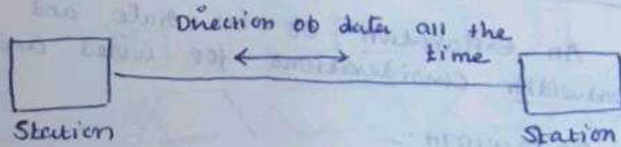 Direction ob data all the
time
Station
Station